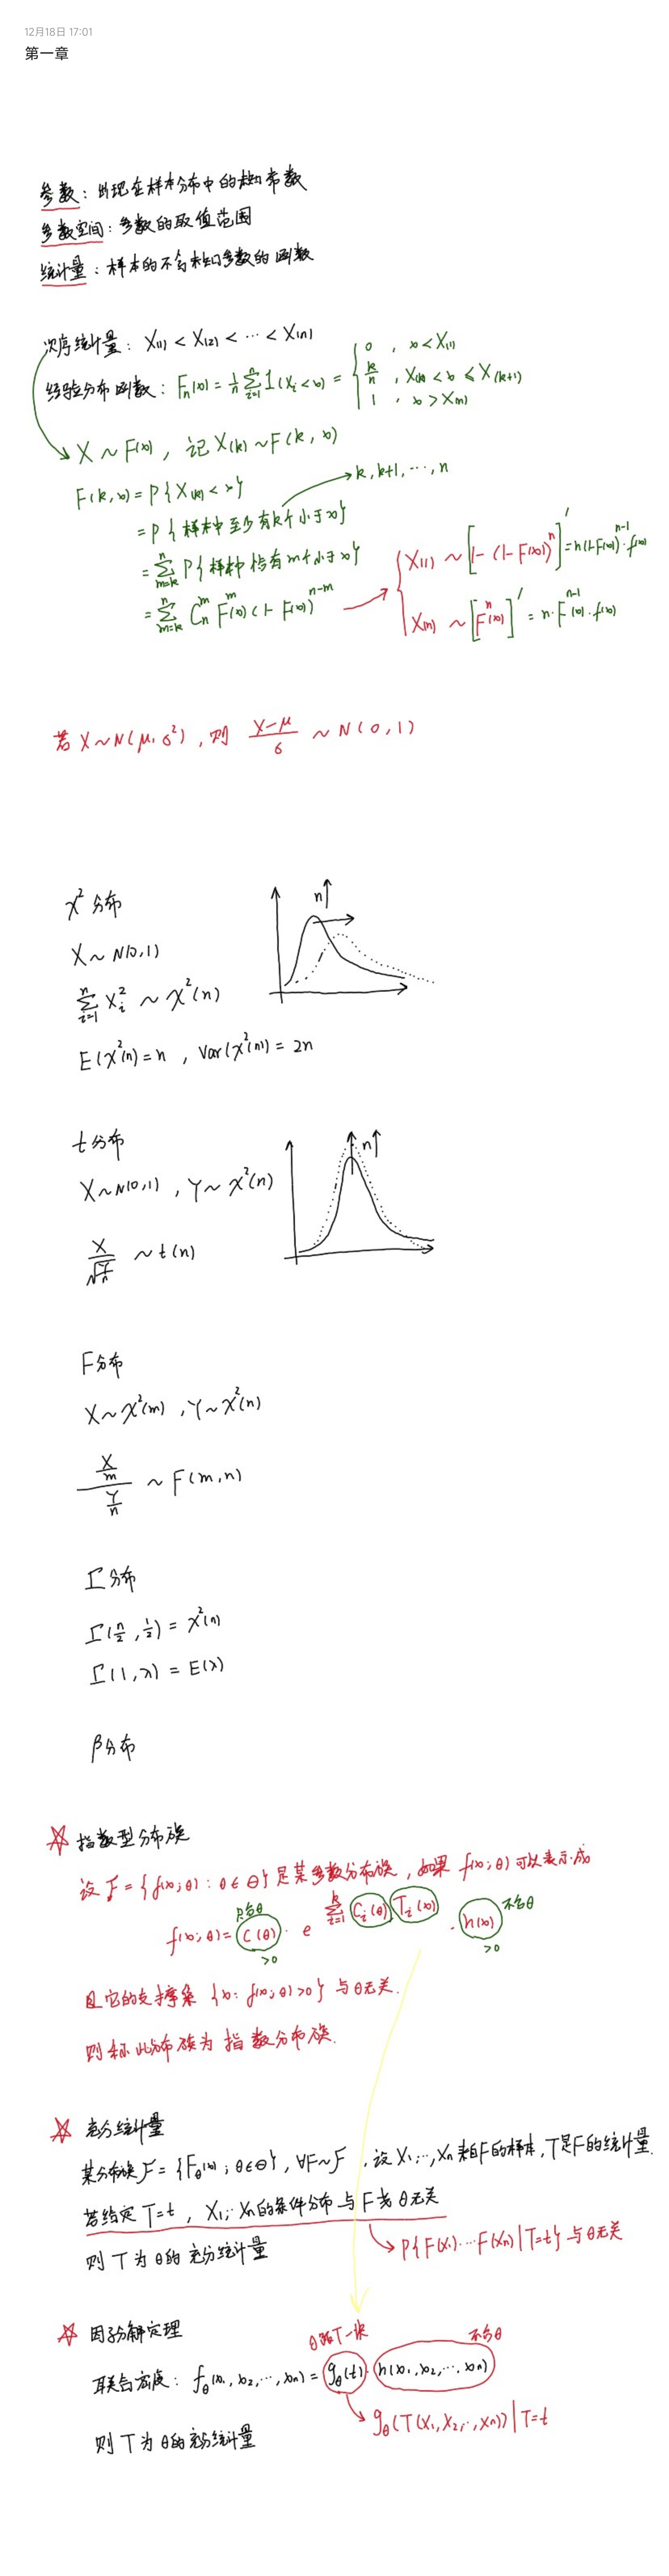 12月18日 17:01
第一章
参数：出现在样本分布中的未知常数
参数空间：参数的取值范围
统计量：样本的不含未知参数的函数
次序统计量：X(1) < X(2) < ⋯ < X(n)
经验分布函数：Fn(x) = 1/n ∑_{i=1}^{n} 1(Xi < x) = { 0 , x < X(1)
k/n , X(k) < x ≤ X(k+1)
1 , x > X(n)
X ~ F(x) , 记 X(k) ~ F(k, x)
F(k, x) = P{X(k) < x}
k, k+1, ⋯, n
= P{样本中至少有k个小于x}
= ∑_{m=k}^{n} P{样本中恰有m个小于x}
= ∑_{m=k}^{n} C_n^m F(x)^m (1 - F(x))^{n-m}
X(1) ~ [1 - (1 - F(x))^n]' = n(1 - F(x))^{n-1} · f(x)
X(n) ~ [F(x)^n]' = n · F(x)^{n-1} · f(x)
若 X ~ N(μ, σ²) , 则 (X-μ)/σ ~ N(0, 1)
χ² 分布
n↑
X ~ N(0, 1)
∑_{i=1}^{n} X_i² ~ χ²(n)
E(χ²(n)) = n , Var(χ²(n)) = 2n
t 分布
n↑
X ~ N(0, 1) , Y ~ χ²(n)
X/√(Y/n) ~ t(n)
F 分布
X ~ χ²(m) , Y ~ χ²(n)
(X/m)/(Y/n) ~ F(m, n)
Γ 分布
Γ(n/2, 1/2) = χ²(n)
Γ(1, λ) = E(λ)
β 分布
☆ 指数型分布族
设 F = {f(x; θ) : θ ∈ Θ} 是某参数分布族 , 如果 f(x; θ) 可以表示成
只含θ
不含θ
f(x; θ) = C(θ) · e^{∑_{i=1}^{k} Ci(θ) Ti(x)} · h(x)
>0
>0
且它的支撑集 {x : f(x; θ) > 0} 与θ无关.
则称此分布族为指数分布族.
☆ 充分统计量
某分布族 F = {Fθ(x) ; θ ∈ Θ} , ∀F ~ F , 设 X1, ⋯, Xn 来自F的样本, T是F的统计量.
若给定 T = t , X1, ⋯ Xn 的条件分布与F或θ无关
P{F(X1) ⋯ F(Xn) | T = t} 与θ无关
则 T 为 θ的充分统计量
☆ 因子分解定理
θ跟T一块
不含θ
联合密度： fθ(x1, x2, ⋯, xn) = gθ(t) · h(x1, x2, ⋯, xn)
gθ(T(X1, X2, ⋯, Xn)) | T = t
则 T 为 θ的充分统计量